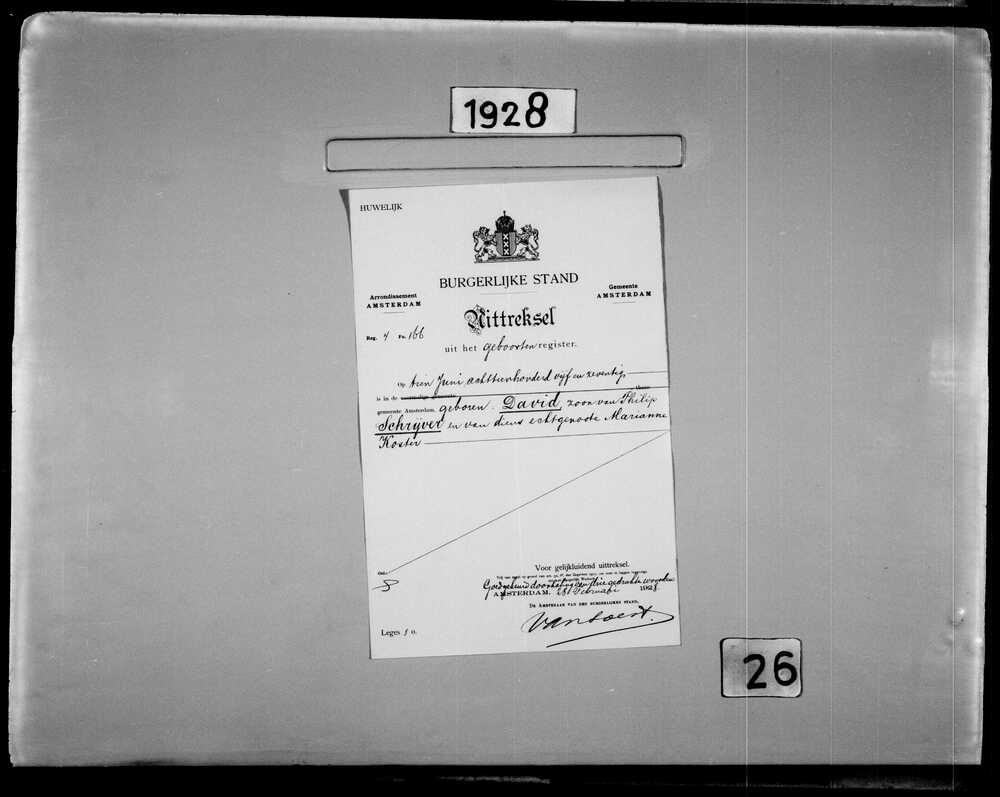 1928
HUWELIJK
BURGERLIJKE STAND
Arrondissement
AMSTERDAM
Gemeente
AMSTERDAM
Uittreksel
Reg. 4 Fo. 166
uit het geboorten register.
Op tien Juni achttienhonderd vijf en zeventig
is in de
gemeente Amsterdam, geboren: David, zoon van Philip
Schrijver en van diens echtgenoote Marianne
Koster
Voor gelijkluidend uittreksel.
Goedgekeurd doorhaling van drie gedrukte woorden
AMSTERDAM, 28 Februari 1928.
DE AMBTENAAR VAN DEN BURGERLIJKEN STAND,
Leges f 0.
26